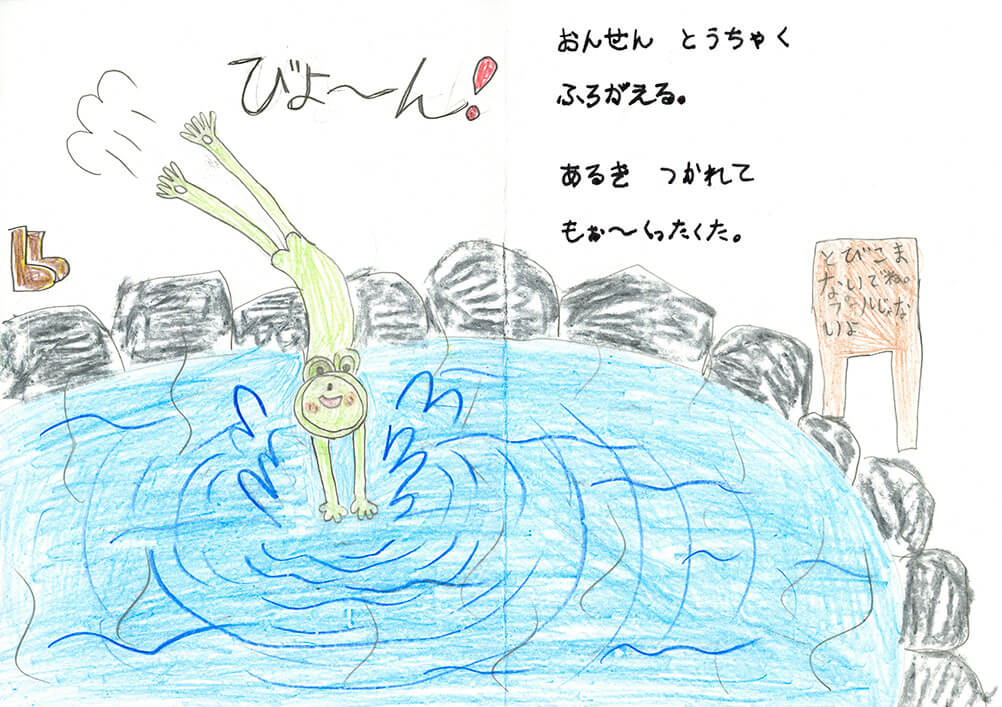 びよ〜ん!
おんせん とうちゃく
ふろがえる。
あるき つかれて
もぉ〜くったくた。
とびこま
ないでね。
プールじゃな
いよ